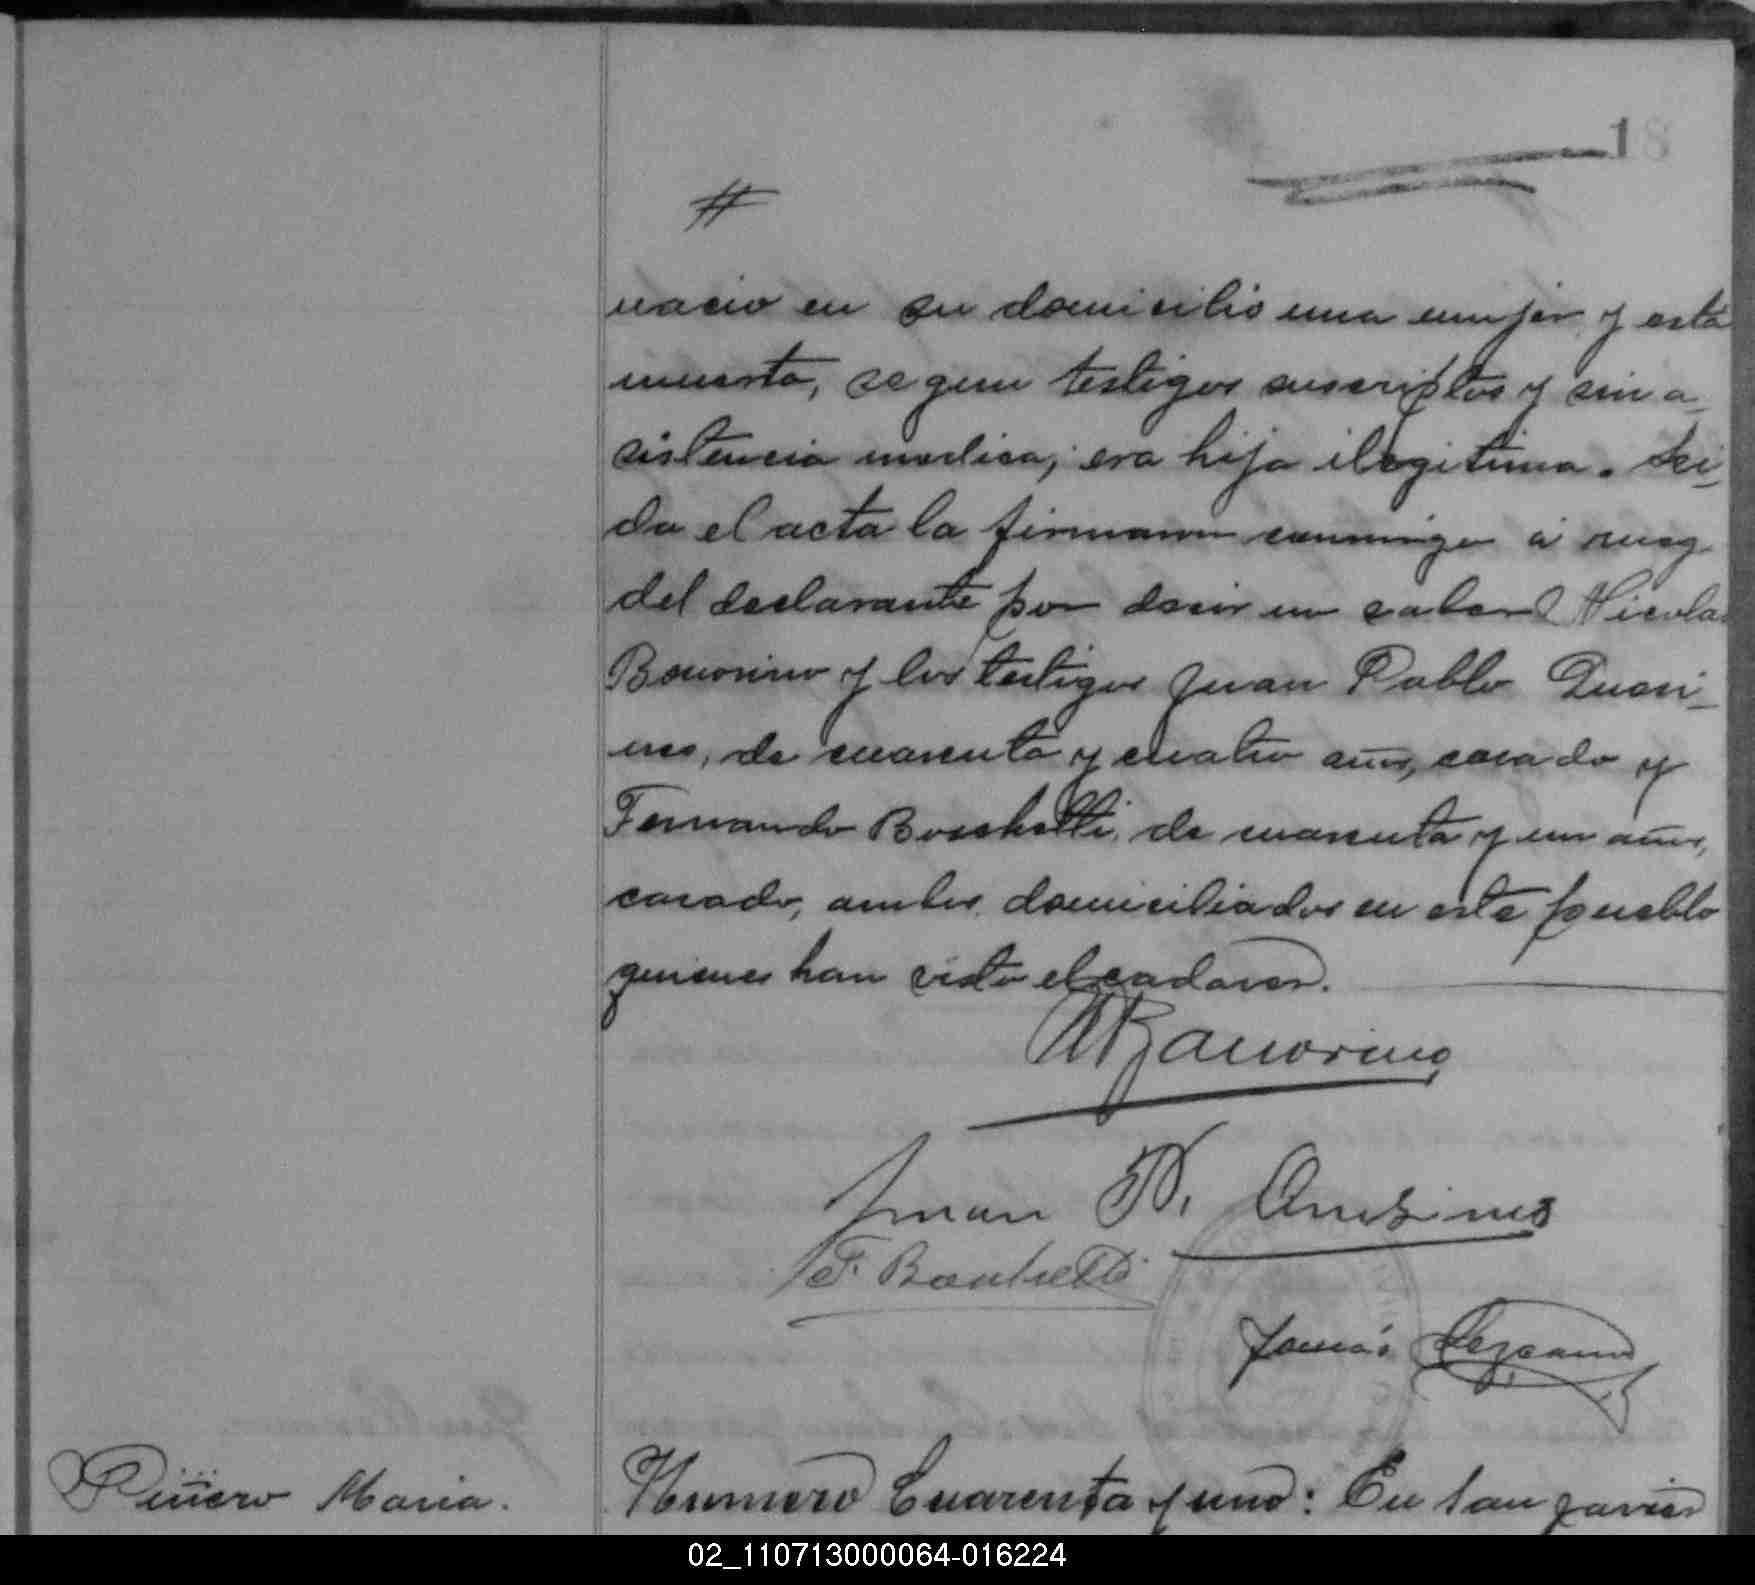 18
#
nacio en su domicilio una mujer y está
muerta, segun testigos suscriptos y sin a-
sistencia medica; era hija ilegitima. Lei-
da el acta la firmaron conmigo á rueg
del declarante por decir no saber Nicolas
Bonorino y los testigos Juan Pablo
de cuarenta y cuatro años, casado y
Fernando de cuarenta y un años,
casado, ambos domiciliados en este pueblo
quienes han visto el cadaver.
NBonorino
Juan P.
F.
Tomás Lezcano
Piñero Maria.
Numero Cuarenta y uno: En San Javier
02_110713000064-016224